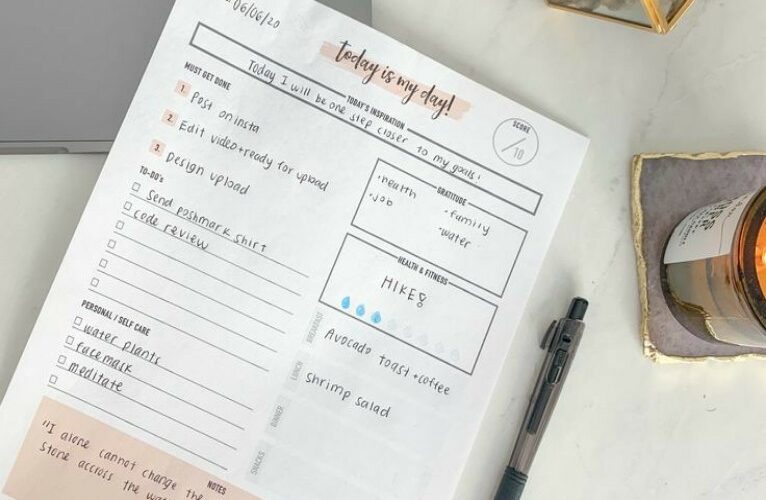 06/06/20
today is my day!
TODAY'S INSPIRATION
Today I will be one step closer to my goals!
SCORE
/10
MUST GET DONE
1. Post on insta
2. Edit video+ready for upload
3. Design upload
TO-DO's
Send poshmark shirt
code review
PERSONAL / SELF CARE
water plants
face mask
meditate
GRATITUDE
·health
·job
·family
·water
HEALTH & FITNESS
HIKE!
BREAKFAST
Avocado toast + coffee
LUNCH
Shrimp salad
DINNER
SNACKS
NOTES
"I alone cannot change the
stone accross the